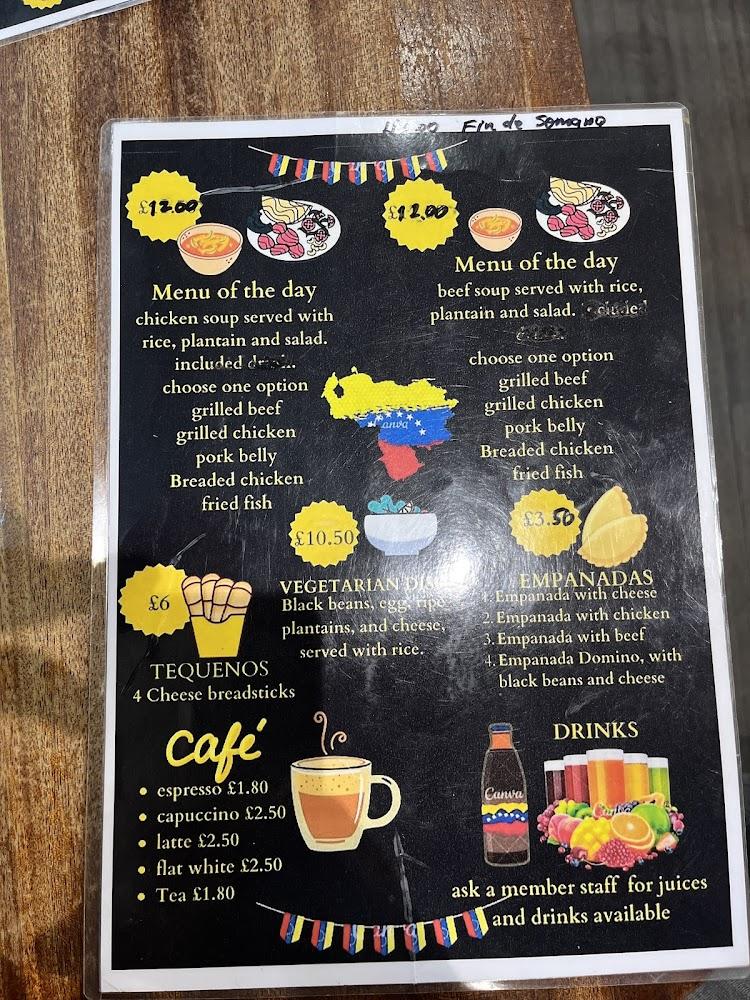 Fin de Semana
£12.00
Menu of the day
chicken soup served with
rice, plantain and salad.
included
choose one option
grilled beef
grilled chicken
pork belly
Breaded chicken
fried fish
£12.00
Menu of the day
beef soup served with rice,
plantain and salad.
choose one option
grilled beef
grilled chicken
pork belly
Breaded chicken
fried fish
Canva
£10.50
VEGETARIAN
Black beans, egg, ripe
plantains, and cheese,
served with rice.
£3.50
EMPANADAS
1. Empanada with cheese
2. Empanada with chicken
3. Empanada with beef
4. Empanada Domino, with
black beans and cheese
£6
TEQUENOS
4 Cheese breadsticks
Café
• espresso £1.80
• capuccino £2.50
• latte £2.50
• flat white £2.50
• Tea £1.80
DRINKS
Canva
ask a member staff for juices
and drinks available